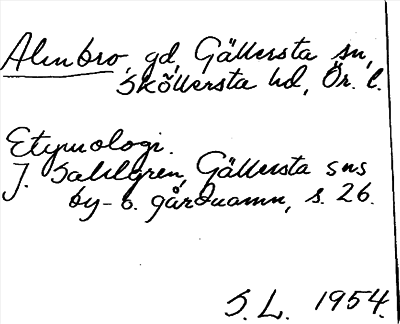 Almbro, gd, Gällersta sn,
Sköllersta hd, Ör. l.
Etymologi.
J. Sahlgren, Gällersta sns
by- o. gårdnamn, s. 26.
S. L. 1954.